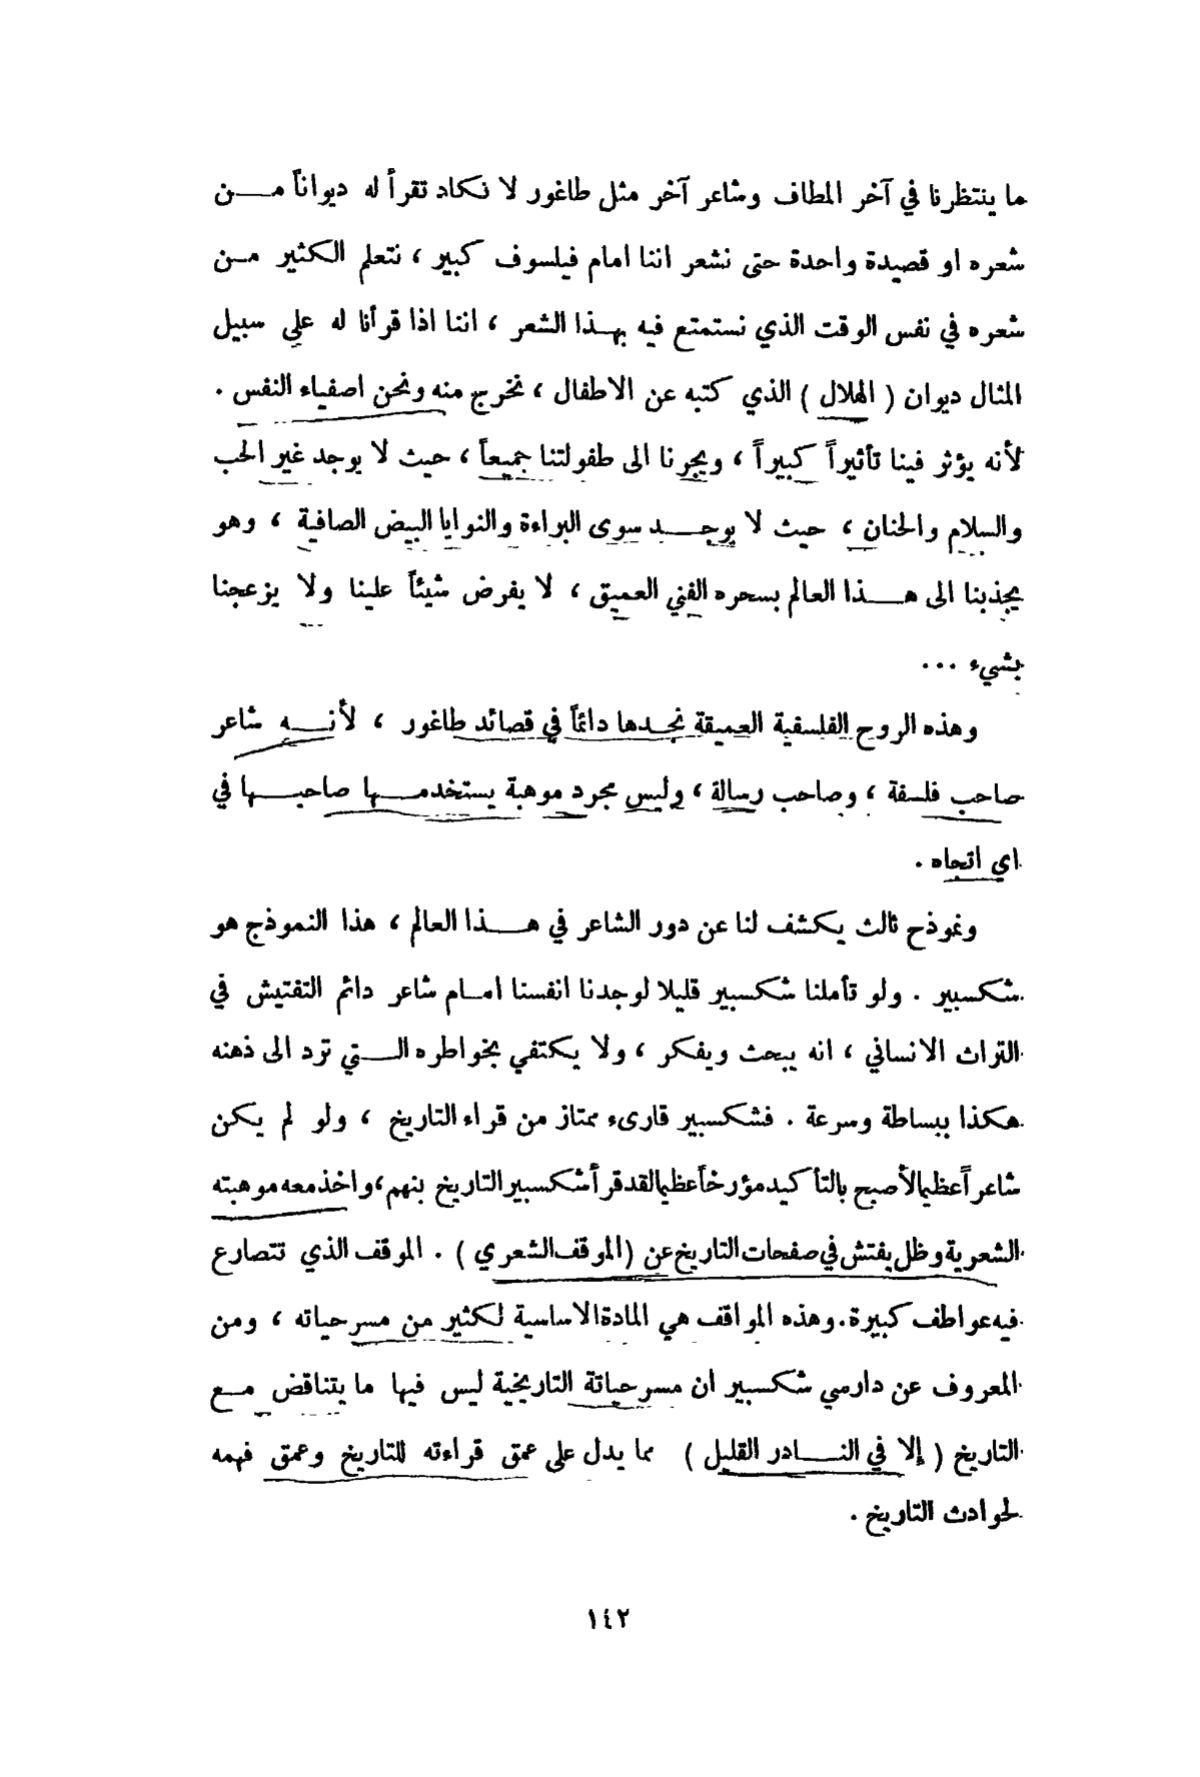 ما ينتظرنا في آخر المطاف وشاعر آخر مثل طاغور لا نكاد تقرأ له ديواناً من
شعره او قصيدة واحدة حتى نشعر اننا امام فيلسوف كبير ، نتعلم الكثير من
شعره في نفس الوقت الذي نستمتع فيه بهذا الشعر ، اننا اذا قرأنا له على سبيل
المثال ديوان ( الهلال ) الذي كتبه عن الاطفال ، نخرج منه ونحن اصفياء النفس .
لأنه يؤثر فينا تأثيراً كبيراً ، ويجرنا الى طفولتنا جميعاً ، حيث لا يوجد غير الحب
والسلام والحنان ، حيث لا يوجد سوى البراءة والنوايا البيض الصافية ، وهو
يجذبنا الى هذا العالم بسحره الفني العميق ، لا يفرض شيئاً علينا ولا يزعجنا
بشيء ...
وهذه الروح الفلسفية العميقة نجدها دائماً في قصائد طاغور ، لأنه شاعر
صاحب فلسفة ، وصاحب رسالة ، وليس مجرد موهبة يستخدمها صاحبها في
اي اتجاه .
ونموذج ثالث يكشف لنا عن دور الشاعر في هذا العالم ، هذا النموذج هو
شكسبير . ولو تأملنا شكسبير قليلا لوجدنا انفسنا امام شاعر دائم التفتيش في
التراث الانساني ، انه يبحث ويفكر ، ولا يكتفي بخواطره التي ترد الى ذهنه
هكذا ببساطة وسرعة . فشكسبير قارىء ممتاز من قراء التاريخ ، ولو لم يكن
شاعراً عظيما لأصبح بالتأكيد مؤرخاً عظيما لقد قرأ شكسبير التاريخ بنهم ، واخذ معه موهبته
الشعرية وظل يفتش في صفحات التاريخ عن ( الموقف الشعري ) . الموقف الذي تتصارع
فيه عواطف كبيرة . وهذه المواقف هي المادة الاساسية لكثير من مسرحياته ، ومن
المعروف عن دارسي شكسبير ان مسرحياتة التاريخية ليس فيها ما يتناقض مع
التاريخ ( إلا في النادر القليل ) مما يدل على عمق قراءته للتاريخ وعمق فهمه
لحوادث التاريخ .
١٤٢